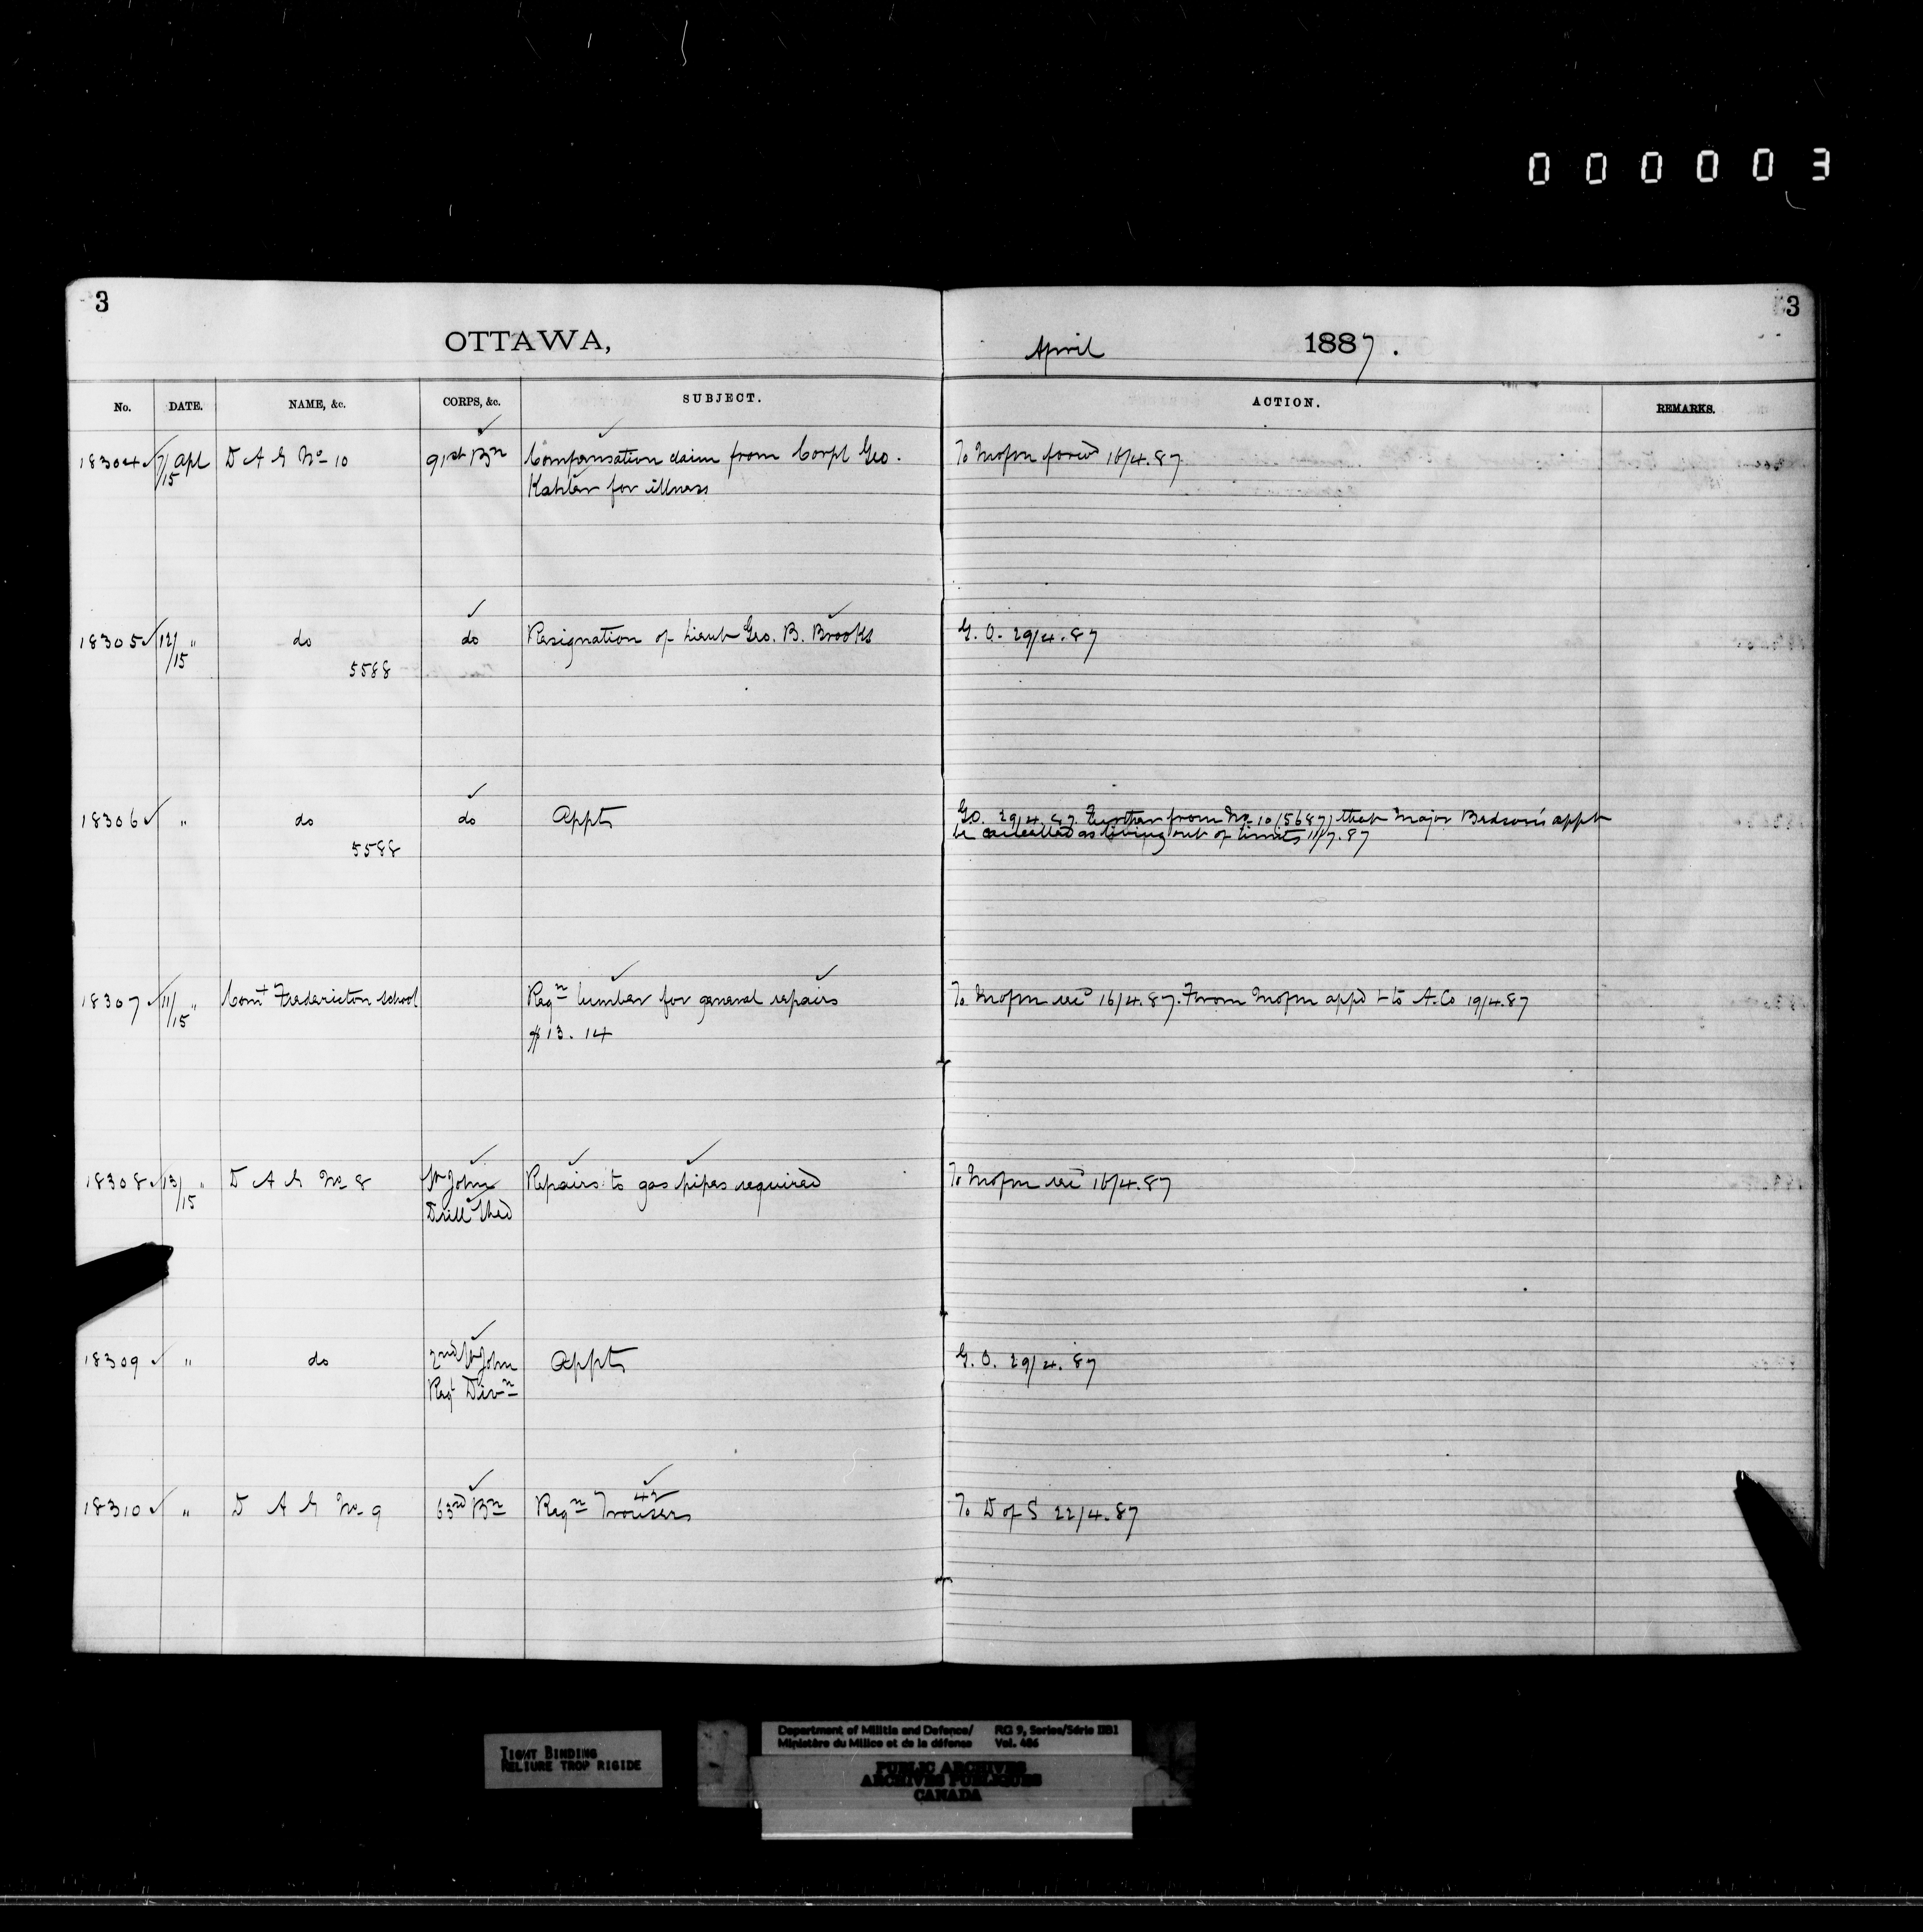 000003
3
3
OTTAWA,
April 1887.
No. DATE. NAME, &c. CORPS, &c. SUBJECT. ACTION. REMARKS.
18304 7/15 Apl D A G No 10 91st Bn Compensation claim from Corpl Geo. To forwd 16/4.87
Kahler for illness
18305 12/15 " do do Resignation of Lieut Geo. B. Brooks G. O. 29/4.87
5588
18306 " do do Appts G.O. 29/4.87. Further from No 10 (5687) that Major Bedson's appt
be cancelled as living out of limits 11/7.87
5588
18307 11/15 " Comt Fredericton School Reqn lumber for general repairs To rec'd 16/4.87. From appd & to A. Co 19/4.87
$13.14
18308 13/15 " D A G No 8 St John Repairs to gas pipes required To rec'd 16/4.87
Drill Shed
18309 " do 2nd St John Appts G. O. 29/4.87
Regt Divn
18310 " D A G No 9 63rd Bn Reqn 42 Trousers To D of S 22/4.87
TIGHT BINDING
RELIURE TROP RIGIDE
Department of Militia and Defence/ RG 9, Series/Série IIB1
Ministère du Milice et de la défense Vol. 486
PUBLIC ARCHIVES
ARCHIVES PUBLIQUES
CANADA